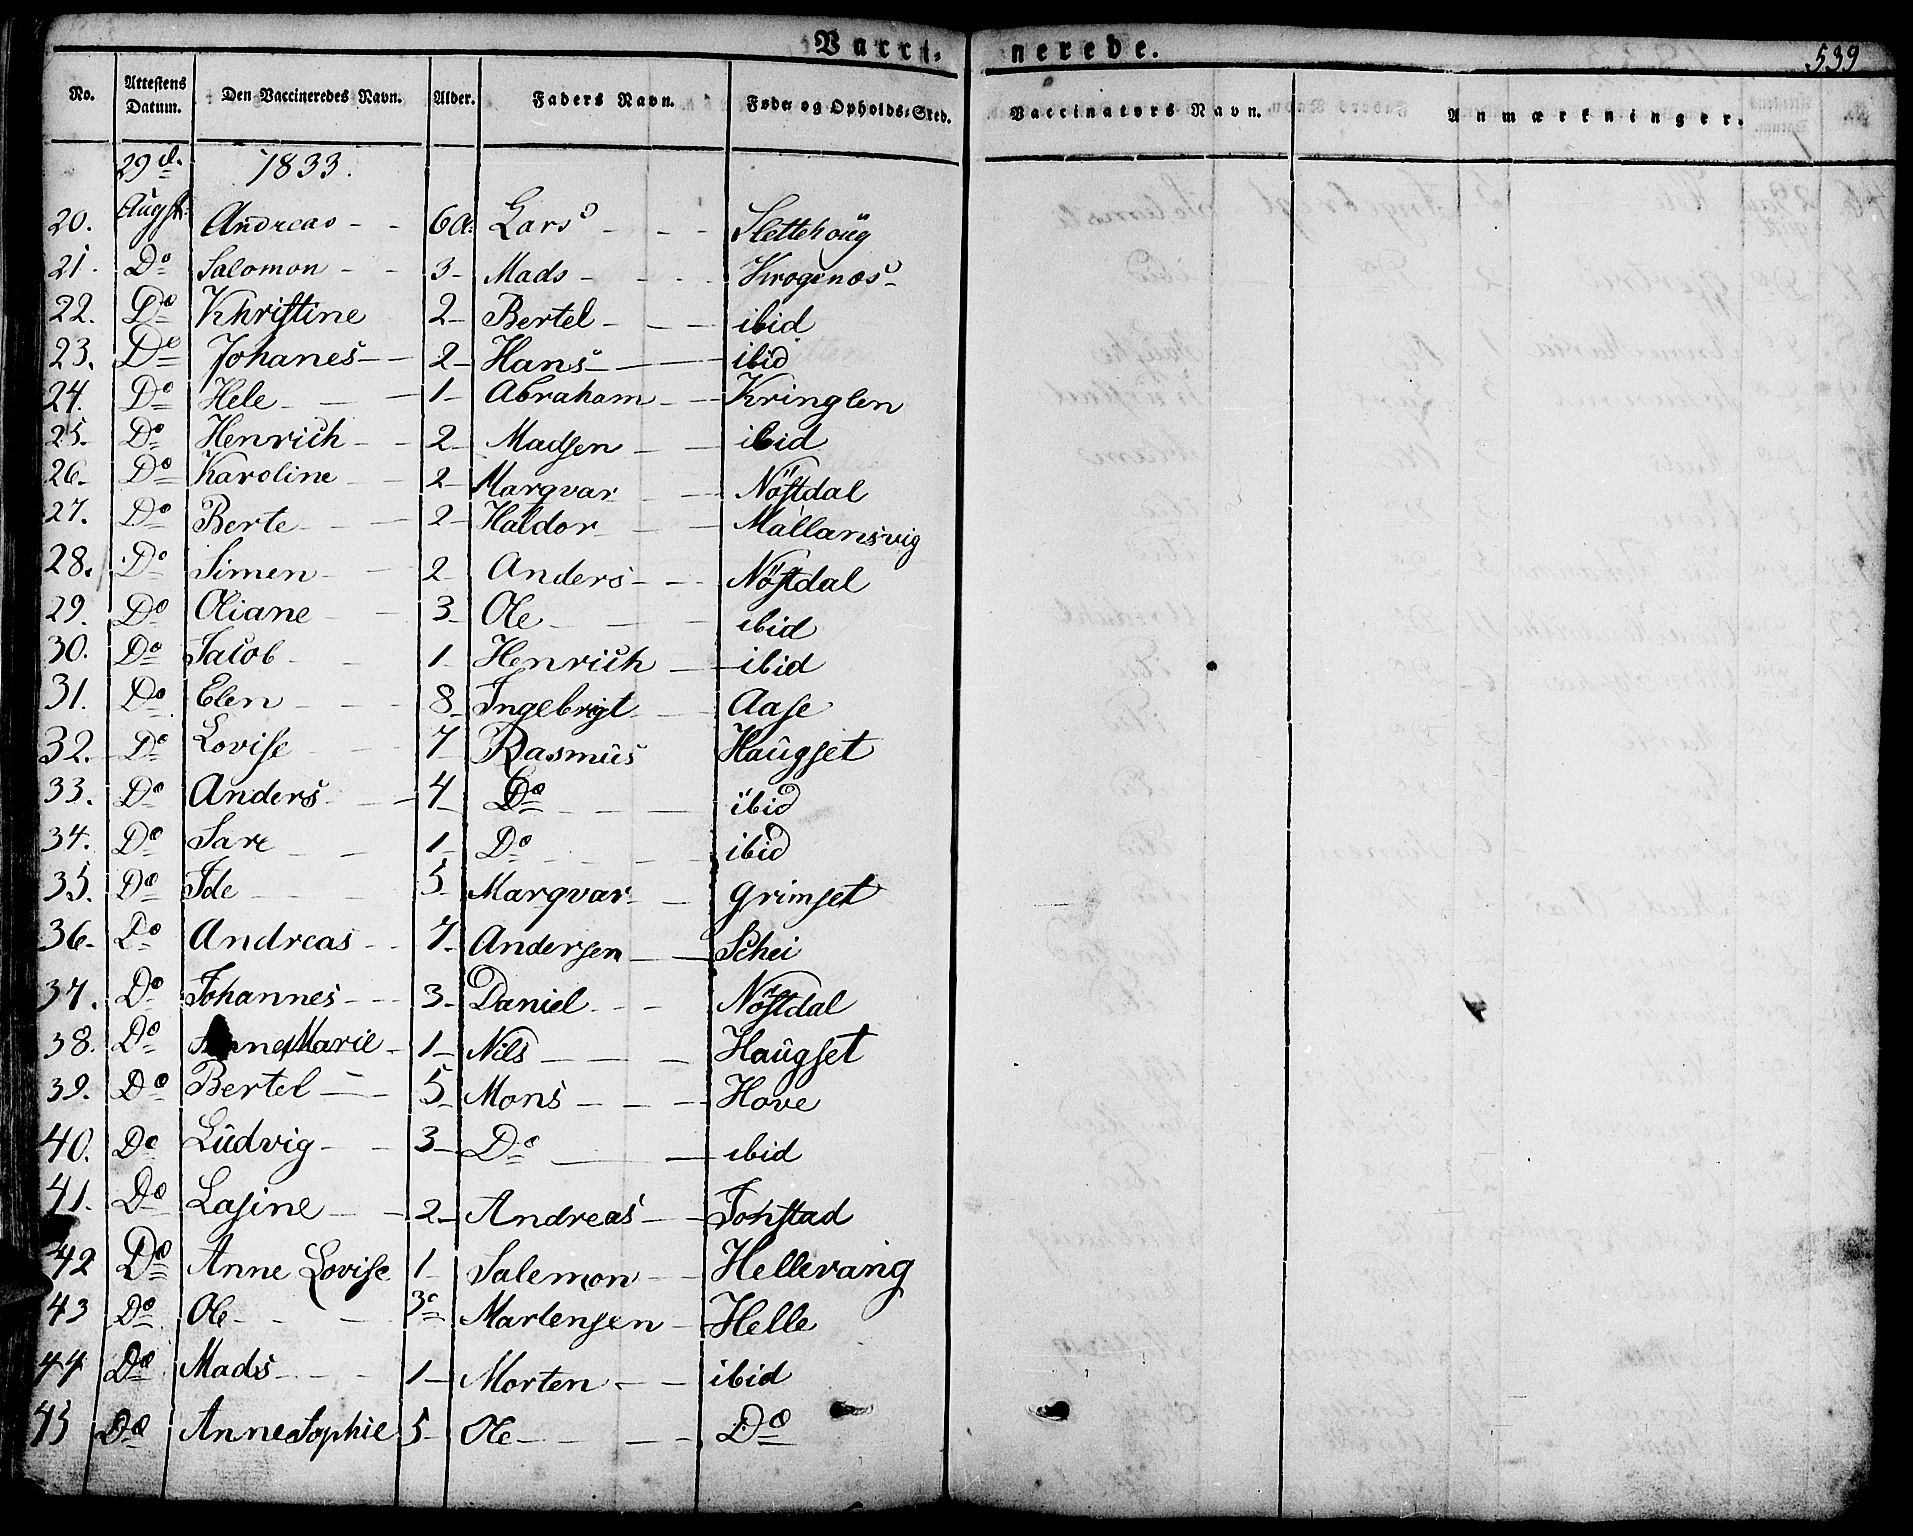 Vacci- nerede. 539
No. Attestens Datum. Den Vaccineredes Navn. Alder. Faders Navn. Føde og Opholds-Sted. Vaccinators Navn. Anmærkninger.
29d. 1833.
20. Augst. Andreas - - 6 a. Lars - - Slettehöug
21. Do Salomon - - 3 - Mads - - Krogenæs -
22. Do Khristine 2 - Bertel - - ibid
23. Do Johanes - - 2 - Hans - - ibid
24. Do Hele - - 1 - Abraham - - Kringlen
25. Do Henrich - - 2 - Madsen - - ibid
26. Do Karoline - - 2 - Marqvar - - Nöstdal
27. Do Berte - - 2 - Haldor - - Mallansvig
28. Do Simen - - 2 Anders - - Nöstdal
29. Do Oliane - 3. Ole - - ibid
30. Do Jacob - - 1 - Henrich - ibid
31. Do Elen - - 8 - Ingebrigt - Aase
32. Do Lovise - - 7 Rasmus Haugset
33. Do Anders - - 4 Do - - ibid
34. Do Sare - - 1 - Do - - ibid
35. Do Ide - - 5 Marqvar - - Grimset
36. Do Andreas - - 7. Andersen - Schei
37. Do Johannes - - 3 - Daniel - - Nöstdal
38. Do Anne Marie - 1 - Nils - - Haugset
39. Do Bertel - - 5 - Mons - - Hove
40. Do Ludvig - - 3 - Do - - ibid
41. Do Lasine - - 2 - Andreas - - Jonstad
42 Do Anne Lovise 1 - Salemon - - Hellevang
43 Do Ole - - 3 - Martensen - Helle
44 Do Mads - - 1 - Morten - - ibid
45 Do Anne Sophie 5 - Ole - - Do